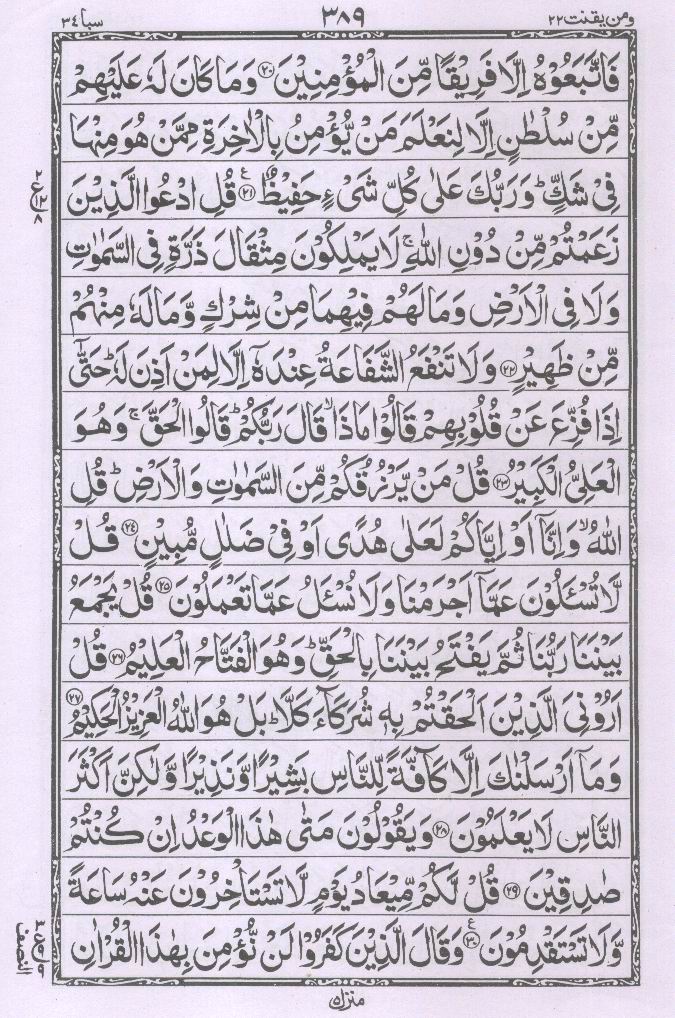 ومن يقنت ٢٢ ٣٨٩ سبا ٣٤
فَاتَّبَعُوْهُ اِلَّا فَرِيْقًا مِّنَ الْمُؤْمِنِيْنَ ﴿۲۰﴾ وَمَا كَانَ لَهٗ عَلَيْهِمْ
مِّنْ سُلْطٰنٍ اِلَّا لِنَعْلَمَ مَنْ يُّؤْمِنُ بِالْاٰخِرَةِ مِمَّنْ هُوَ مِنْهَا
فِىْ شَكٍّ ؕ وَرَبُّكَ عَلٰى كُلِّ شَىْءٍ حَفِيْظٌ ﴿۲۱﴾ ع قُلِ ادْعُوا الَّذِيْنَ
٢ ع ١٢ ٨
زَعَمْتُمْ مِّنْ دُوْنِ اللّٰهِ ۚ لَا يَمْلِكُوْنَ مِثْقَالَ ذَرَّةٍ فِى السَّمٰوٰتِ
وَلَا فِى الْاَرْضِ وَمَا لَهُمْ فِيْهِمَا مِنْ شِرْكٍ وَّمَا لَهٗ مِنْهُمْ
مِّنْ ظَهِيْرٍ ﴿۲۲﴾ وَلَا تَنْفَعُ الشَّفَاعَةُ عِنْدَهٗۤ اِلَّا لِمَنْ اَذِنَ لَهٗ ؕ حَتّٰٓى
اِذَا فُزِّعَ عَنْ قُلُوْبِهِمْ قَالُوْا مَاذَا ۙ قَالَ رَبُّكُمْ ؕ قَالُوا الْحَقَّ ۚ وَهُوَ
الْعَلِىُّ الْكَبِيْرُ ﴿۲۳﴾ قُلْ مَنْ يَّرْزُقُكُمْ مِّنَ السَّمٰوٰتِ وَالْاَرْضِ ؕ قُلِ
اللّٰهُ ۙ وَاِنَّاۤ اَوْ اِيَّاكُمْ لَعَلٰى هُدًى اَوْ فِىْ ضَلٰلٍ مُّبِيْنٍ ﴿۲۴﴾ قُلْ
لَّا تُسْـَٔلُوْنَ عَمَّاۤ اَجْرَمْنَا وَلَا نُسْـَٔلُ عَمَّا تَعْمَلُوْنَ ﴿۲۵﴾ قُلْ يَجْمَعُ
بَيْنَنَا رَبُّنَا ثُمَّ يَفْتَحُ بَيْنَنَا بِالْحَقِّ ؕ وَهُوَ الْفَتَّاحُ الْعَلِيْمُ ﴿۲۶﴾ قُلْ
اَرُوْنِىَ الَّذِيْنَ اَلْحَقْتُمْ بِهٖ شُرَكَآءَ كَلَّا ؕ بَلْ هُوَ اللّٰهُ الْعَزِيْزُ الْحَكِيْمُ ﴿۲۷﴾
وَمَاۤ اَرْسَلْنٰكَ اِلَّا كَآفَّةً لِّلنَّاسِ بَشِيْرًا وَّنَذِيْرًا وَّلٰكِنَّ اَكْثَرَ
النَّاسِ لَا يَعْلَمُوْنَ ﴿۲۸﴾ وَيَقُوْلُوْنَ مَتٰى هٰذَا الْوَعْدُ اِنْ كُنْتُمْ
صٰدِقِيْنَ ﴿۲۹﴾ قُلْ لَّكُمْ مِّيْعَادُ يَوْمٍ لَّا تَسْتَاْخِرُوْنَ عَنْهُ سَاعَةً
وَّلَا تَسْتَقْدِمُوْنَ ﴿۳۰﴾ ع وَقَالَ الَّذِيْنَ كَفَرُوْا لَنْ نُّؤْمِنَ بِهٰذَا الْقُرْاٰنِ
النصف
منزل ٥